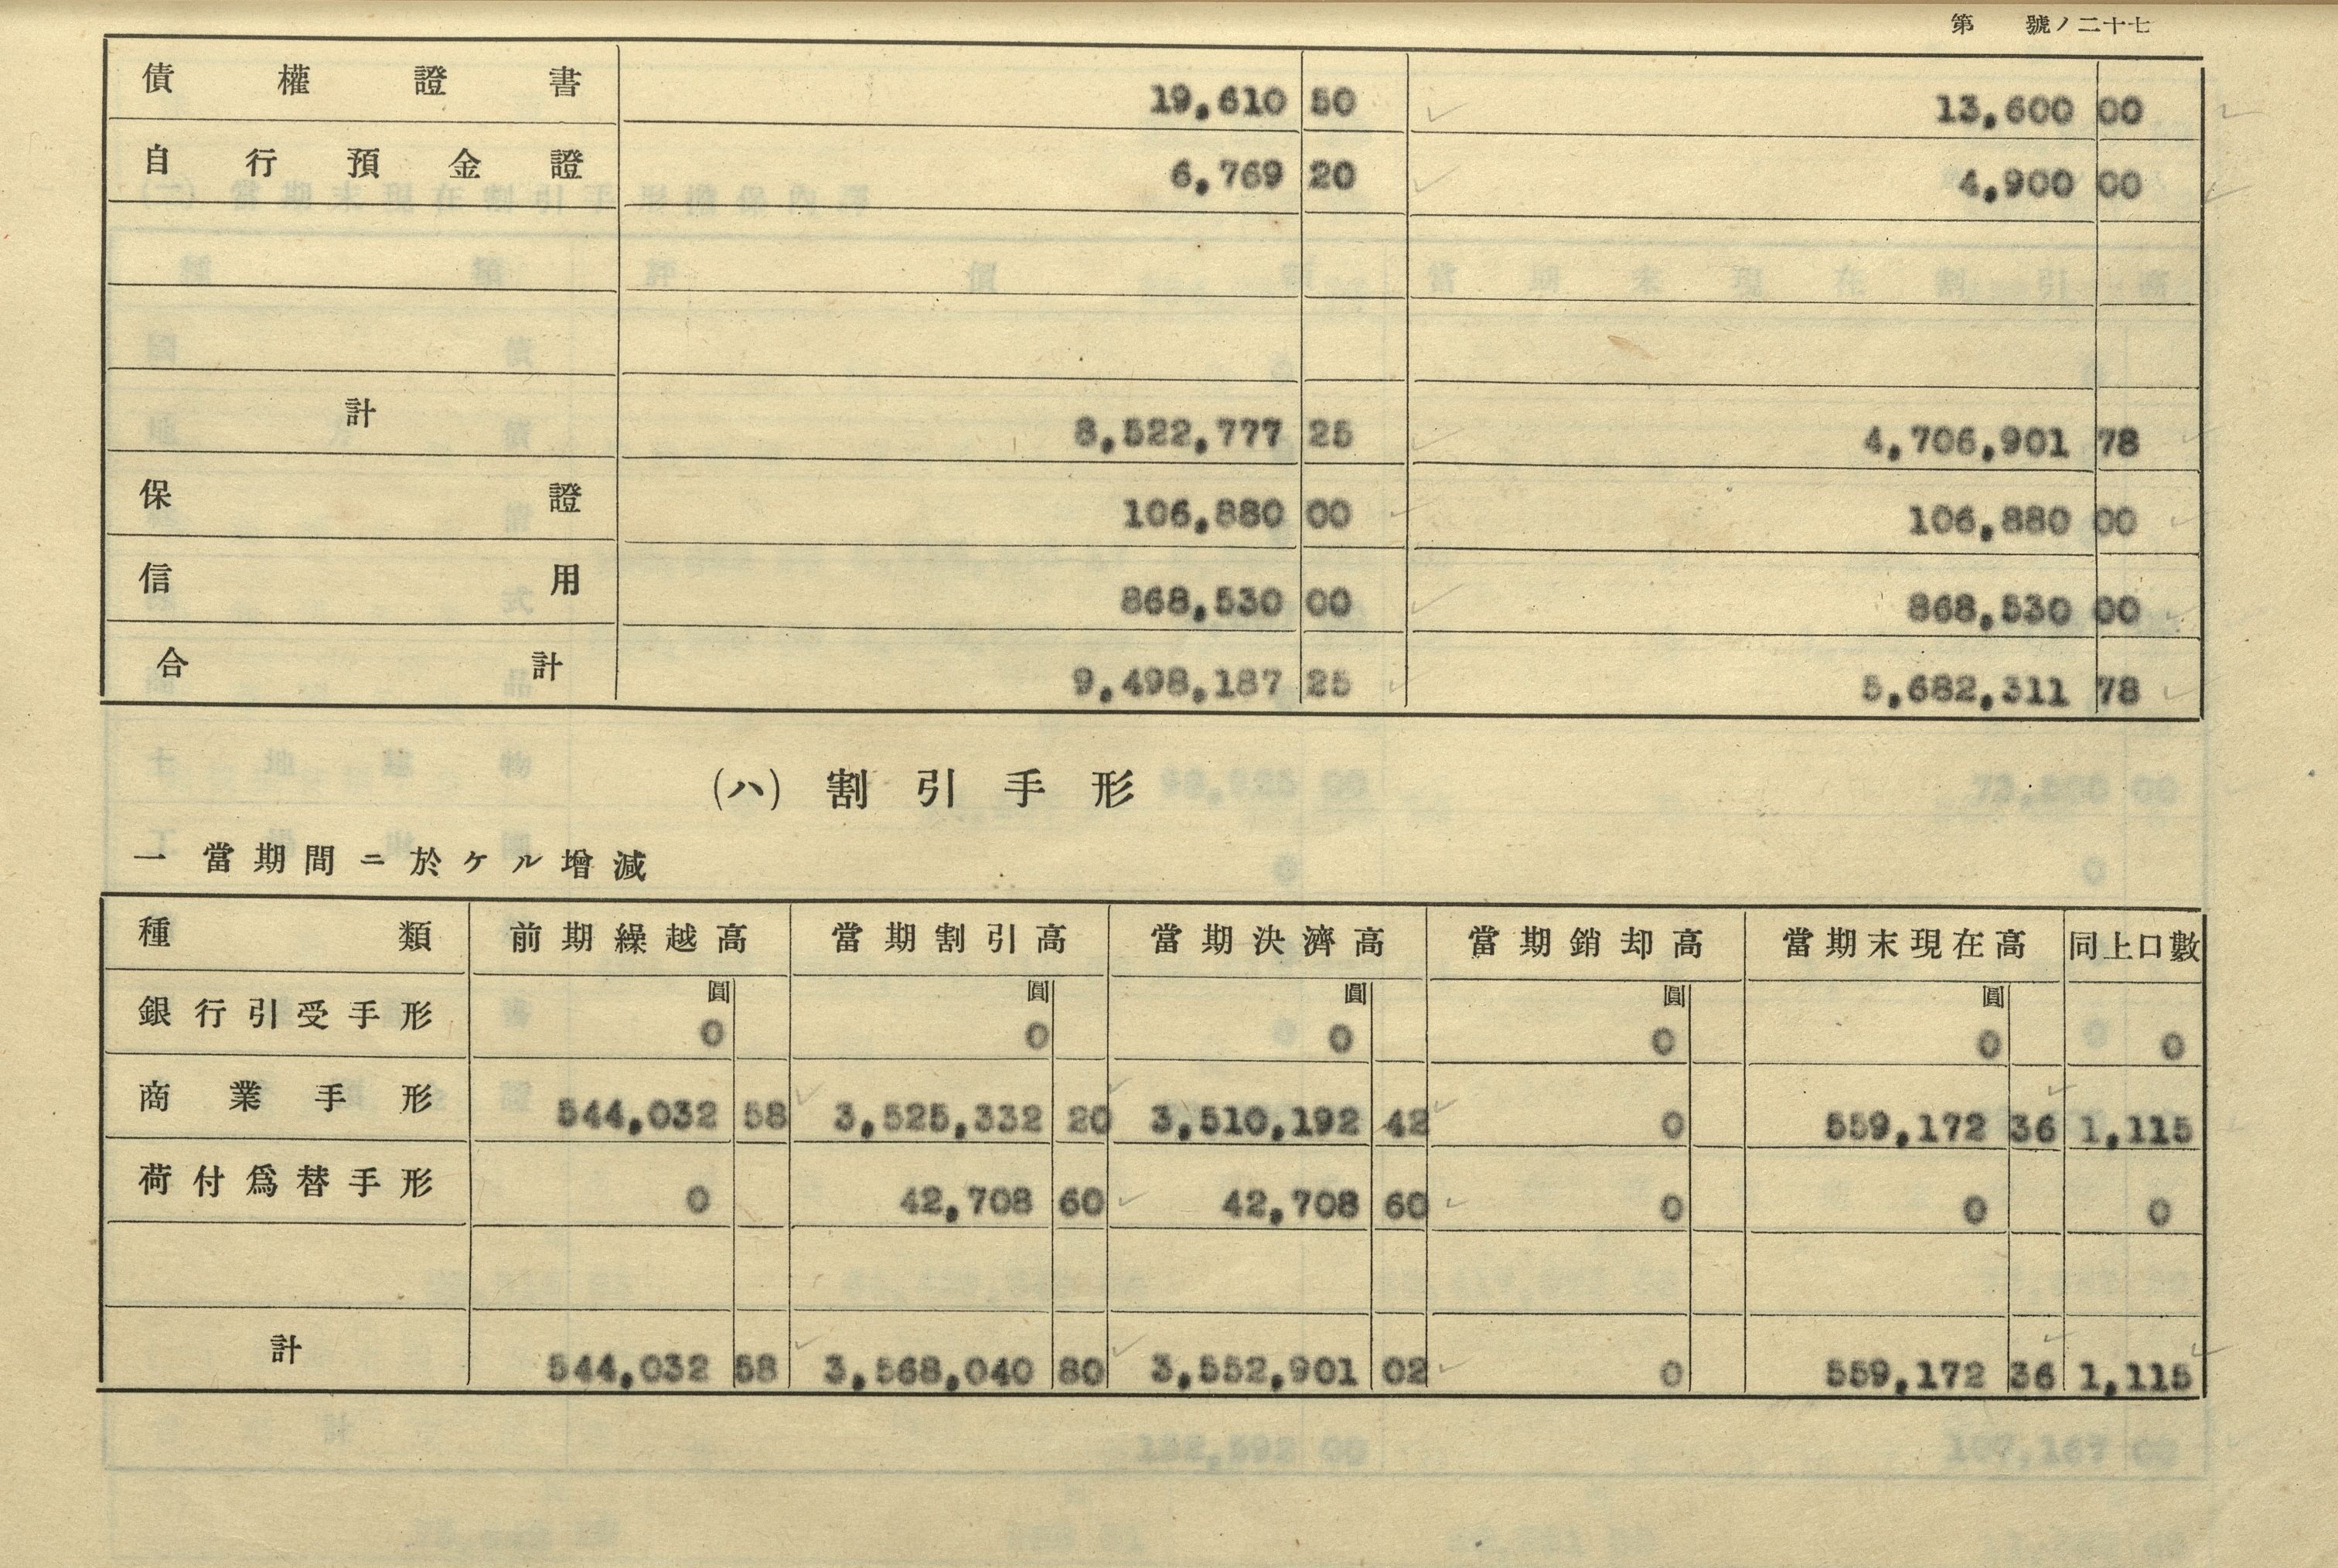 第 號ノ二十七
債權證書 19,610 50 13,600 00
自行預金證 6,769 20 4,900 00
計 8,522,777 25 4,706,901 78
保證 106,880 00 106,880 00
信用 868,530 00 868,530 00
合計 9,498,187 25 5,682,311 78
(ハ) 割引手形
一 當期間ニ於ケル增減
種類 前期繰越高 當期割引高 當期決濟高 當期銷却高 當期末現在高 同上口數
圓 圓 圓 圓 圓
銀行引受手形 0 0 0 0 0 0
商業手形 544,032 58 3,525,332 20 3,510,192 42 0 559,172 36 1,115
荷付爲替手形 0 42,708 60 42,708 60 0 0 0
計 544,032 58 3,568,040 80 3,552,901 02 0 559,172 36 1,115